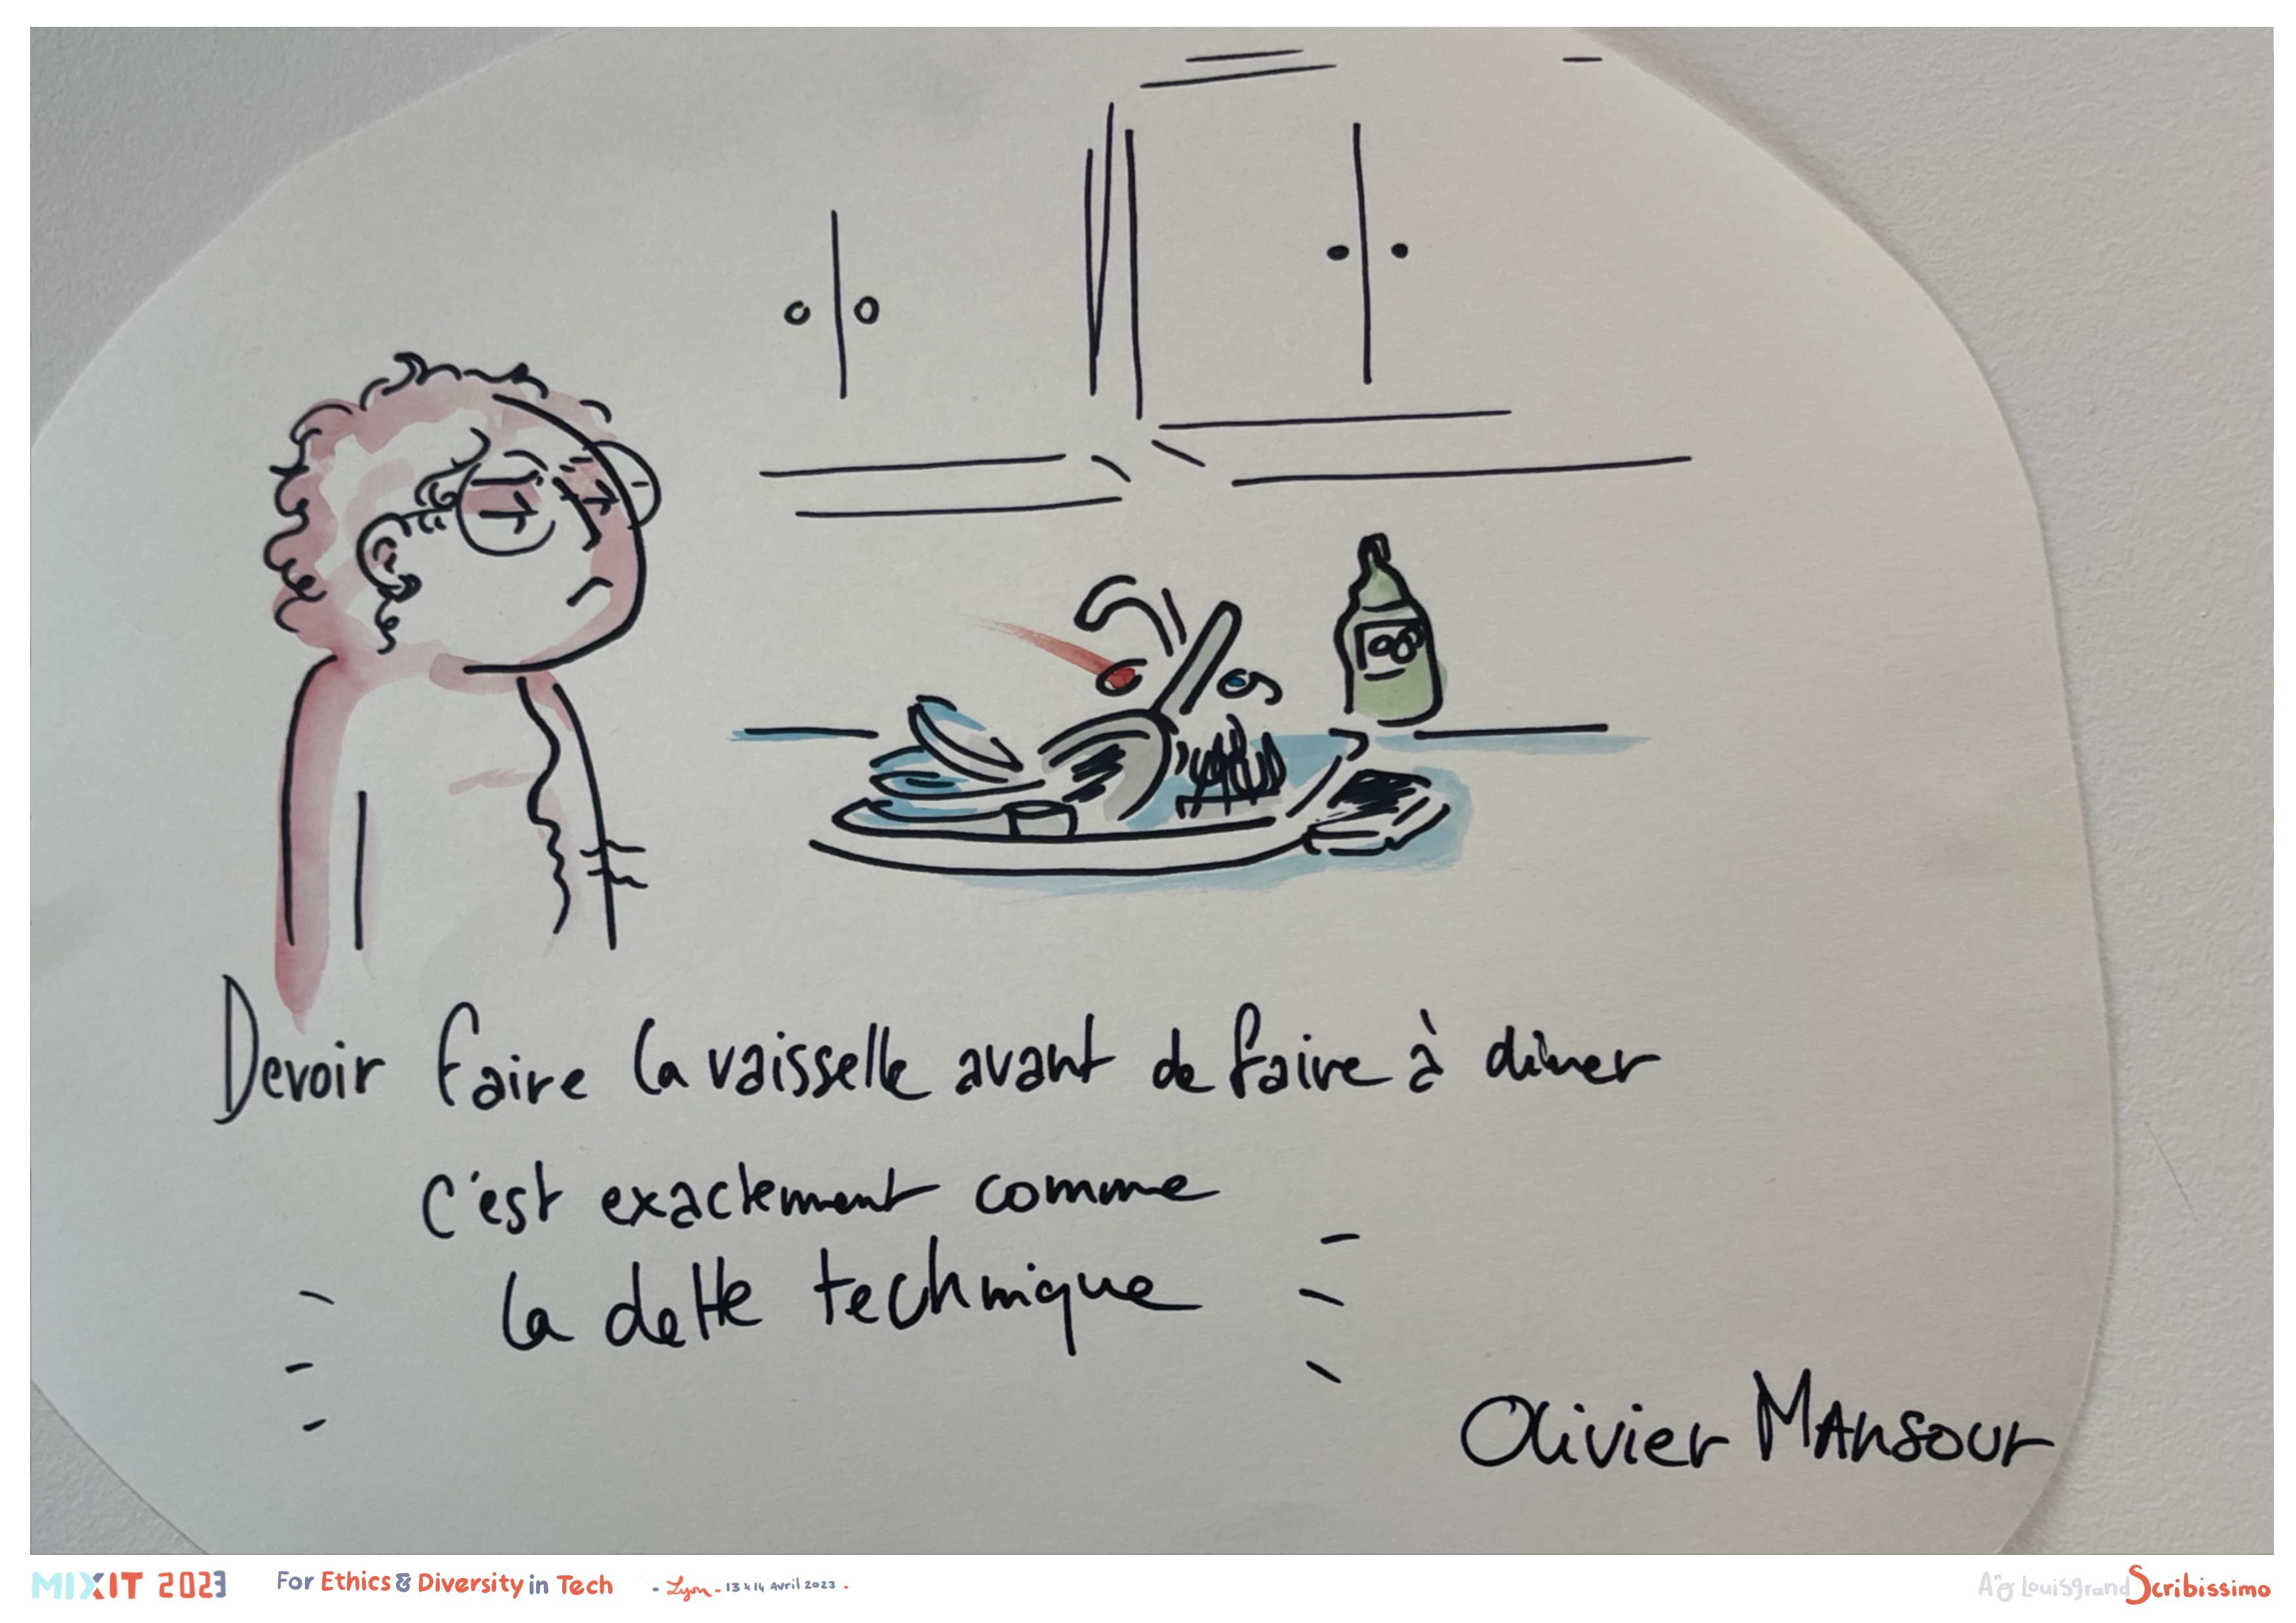 Devoir faire la vaisselle avant de faire à dîner
c'est exactement comme
la dette technique
Olivier MANSOUR
MIXIT 2023 For Ethics & Diversity in Tech - Lyon - 13 & 14 Avril 2023 -
Louisgrand Scribissimo